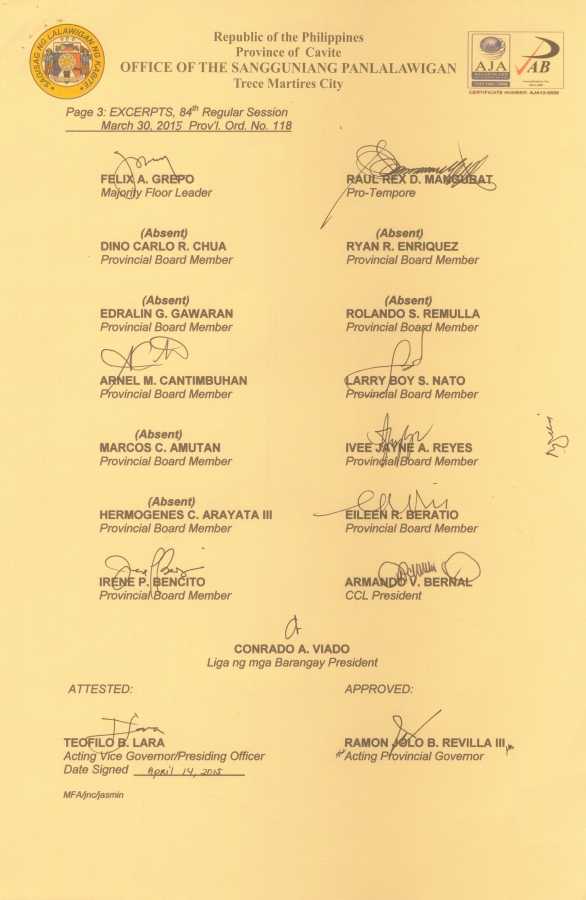 SAGISAG NG LALAWIGAN NG KABITE
Republic of the Philippines
Province of Cavite
OFFICE OF THE SANGGUNIANG PANLALAWIGAN
Trece Martires City
AJA
AB
CERTIFICATE NUMBER: AJA12-0026
Page 3: EXCERPTS, 84th Regular Session
March 30, 2015 Prov'l. Ord. No. 118
FELIX A. GREPO
Majority Floor Leader
RAUL REX D. MANGUBAT
Pro-Tempore
(Absent)
DINO CARLO R. CHUA
Provincial Board Member
(Absent)
RYAN R. ENRIQUEZ
Provincial Board Member
(Absent)
EDRALIN G. GAWARAN
Provincial Board Member
(Absent)
ROLANDO S. REMULLA
Provincial Board Member
ARNEL M. CANTIMBUHAN
Provincial Board Member
LARRY BOY S. NATO
Provincial Board Member
(Absent)
MARCOS C. AMUTAN
Provincial Board Member
IVEE JAYNE A. REYES
Provincial Board Member
(Absent)
HERMOGENES C. ARAYATA III
Provincial Board Member
EILEEN R. BERATIO
Provincial Board Member
IRENE P. BENCITO
Provincial Board Member
ARMANDO V. BERNAL
CCL President
CONRADO A. VIADO
Liga ng mga Barangay President
ATTESTED:
APPROVED:
TEOFILO B. LARA
Acting Vice Governor/Presiding Officer
Date Signed April 14, 2015
RAMON JOLO B. REVILLA III
Acting Provincial Governor
MFA/jnc/jasmin